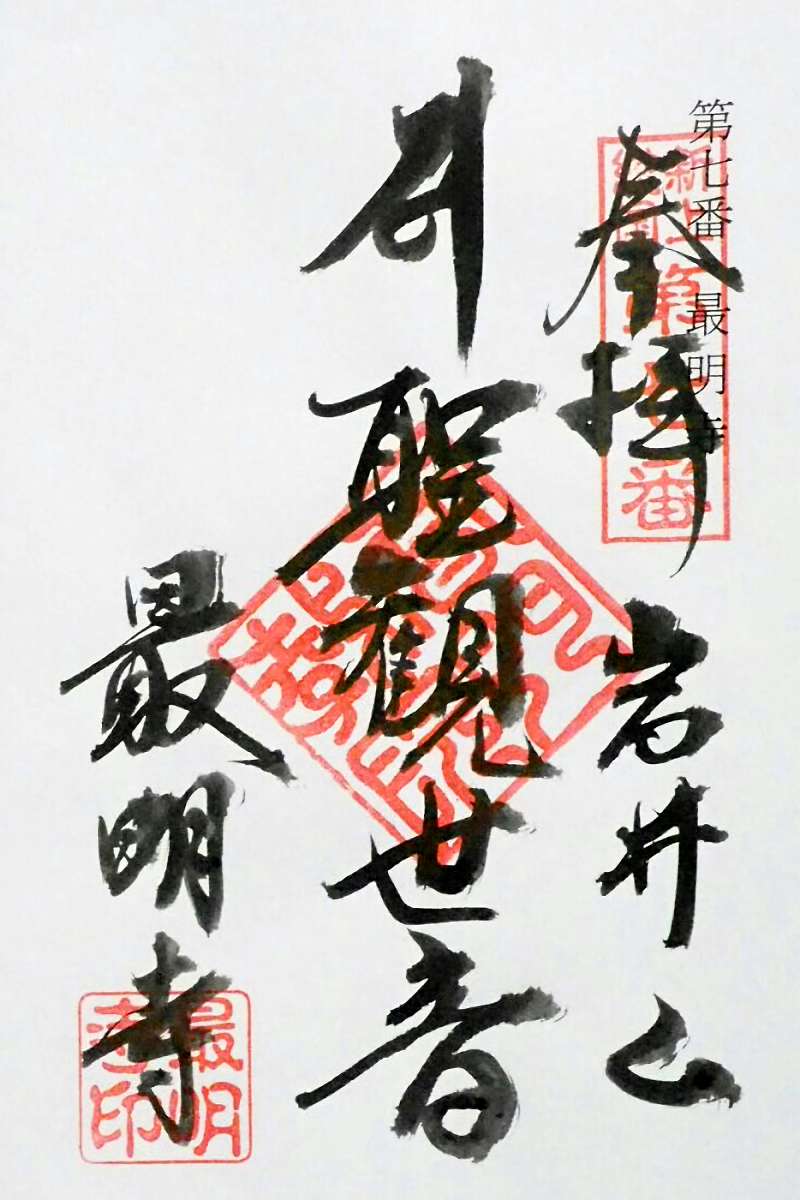 第七番 最明寺
新上総国第七番
奉拝
岩井山
聖観世音
最明寺
最明寺印